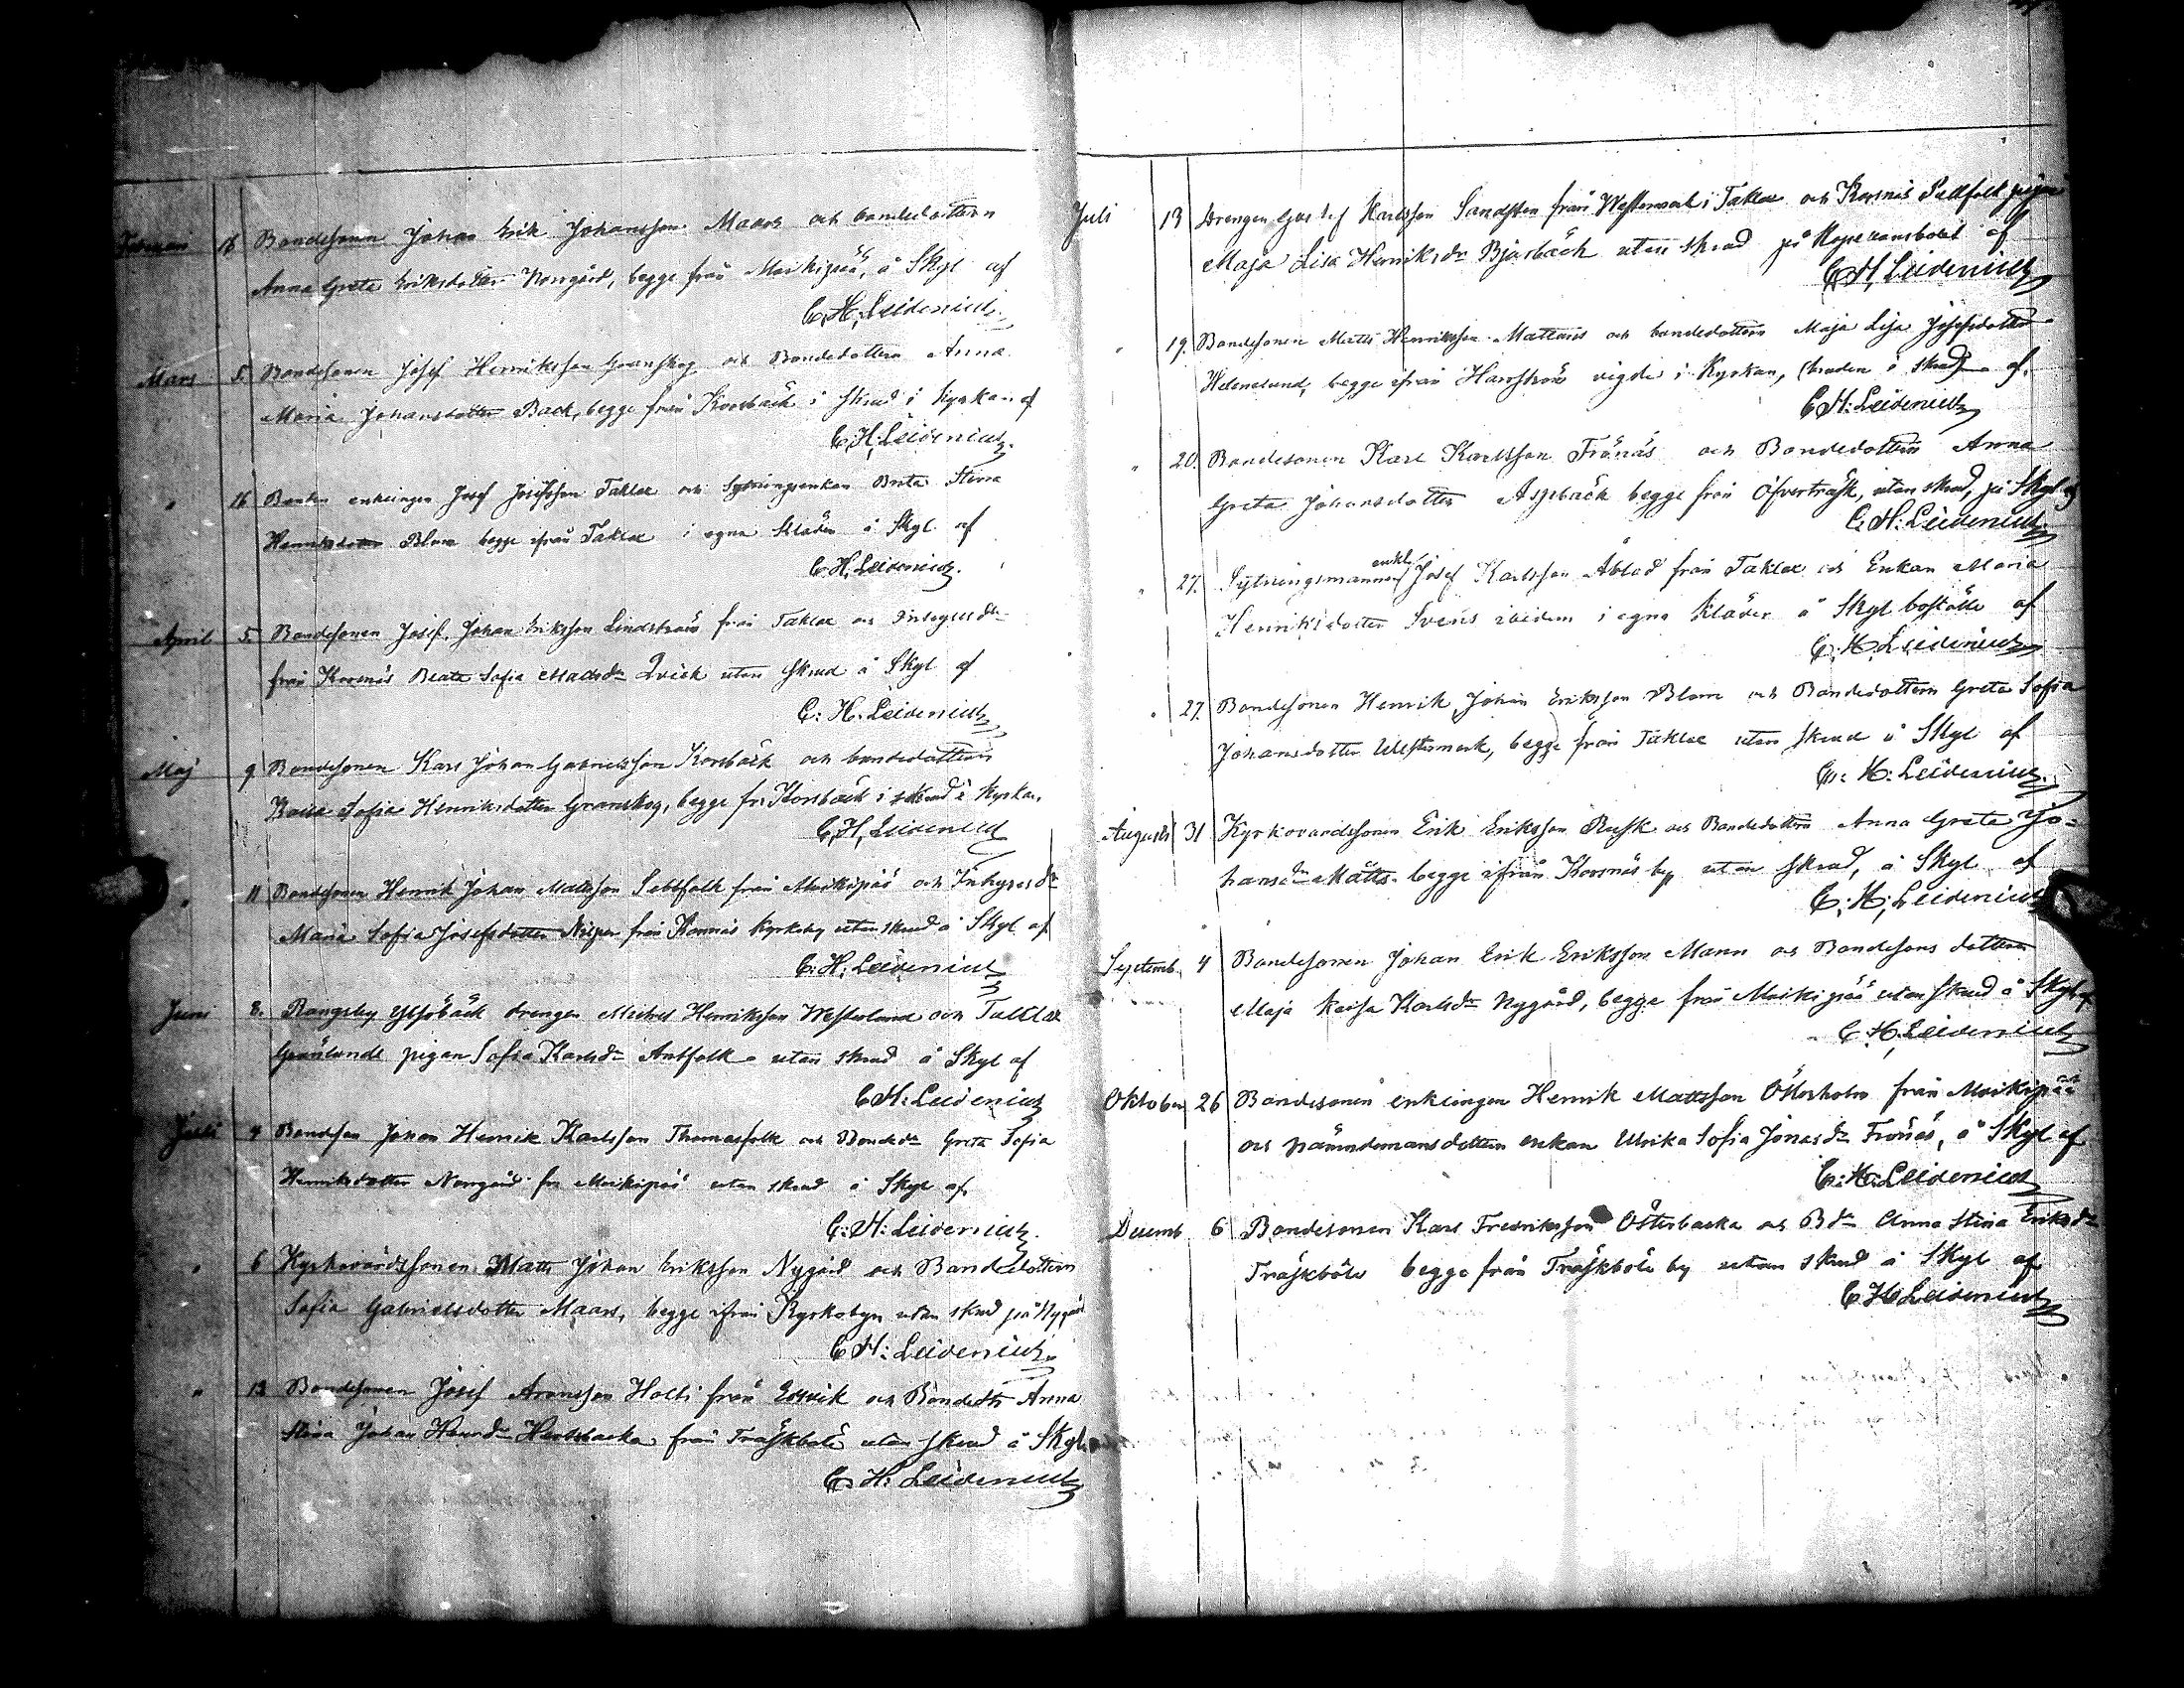 Februari 18 Bondesonen Johan Erik Johansson Maars och bondedottern
Anna Greta Eriksdotter Norrgård, begge från Moikipää, å Skyl af
C. H. Leidenius
Mars 5 Bondesonen Josef Henriksson Granskog och Bondedottern Anna
Maria Johansdotter Back, begge från Korsbäck i skrud i Kyrkan af
C. H. Leidenius.
" 16 Bonden enklingen Josef Josefsson Taklax och Sytningsenkan Brita Stina
Henriksdotter Blom begge ifrån Taklax i egna kläder å Skyl af
C. H. Leidenius.
April 5 Bondesonen Josef Johan Eriksson Lindström från Taklax och Inhysesdr
från Korsnäs Beata Sofia Madsdr Qvick utan skrud å Skyl af
C: H. Leidenius
Maj 9 Bondesonen Karl Johan Gabrielsson Korsbäck och bondedottern
Kaisa Sofia Henriksdotter Granskog, begge fr Korsbäck i skrud i Kyrkan.
C. H. Leidenius
" 11 Bondesonen Henrik Johan Mattsson Sebbfolk från Moikipää och Inhysesdr
Maria Sofia Josefsdotter från Korsnäs Kyrkoby utan skrud å Skyl af
C. H. Leidenius
Juni 8. Rangsby drengen Michel Henriksson Westerlund och Taklax
Granlunds pigan Sofia Karlsdr Antfolk utan skrud å Skyl af
C H: Leidenius
Juli 4 Bondeson Johan Henrik Karlsson Thomasfolk och Bondedr Greta Sofia
Henriksdotter Norrgård fr Moikipää utan skrud å Skyl af
C: H: Leidenius.
" 6 Kyrkovärdssonen Matts Johan Eriksson Nygård och Bondedottern
Sofia Gabrielsdotter Maars, begge ifrån Kyrkobyn utan skrud på Nygård
C H: Leidenius
" 13 Bondesonen Josef Aronsson Holti från Edsvik och Bondedtr Anna
Stina Johan Henrdr Hertsbacka från Träskböle utan skrud å Skyl
C. H: Leidenius
Juli 13 Drengen Gustaf Karlsson Sandsten från Westermark i Taklax och Korsnäs pigan
Maja Lisa Henriksdr Bjurbäck utan skrud på Kapellansbolet af
C. H. Leidenius
" 19. Bondesonen Matts Henriksson Mattans och bondedottern Maja Lisa Josefsdotter
Helenelund, begge ifrån Harrström vigde i Kyrkan, bruden i skrud af.
C H: Leidenius
" 20. Bondesonen Karl Karlsson Frönäs och Bondedottern Anna
Greta Johansdotter Aspbäck begge från Öfverträsk, utan skrud, på Skyl af
C. H: Leidenius
" 27. Sytningsmannen enkl. Josef Karlsson Åblad från Taklax och Enkan Maria
Henriksdotter Svens ibidem i egna kläder å Skyl boställe af
C. H. Leidenius
" 27. Bondesonen Henrik Johan Eriksson Blom och Bondedottern Greta Sofia
Johansdotter Westermark, begge från Taklax utan skrud å Skyl af
C: H: Leidenius.
Augusti 31 Kyrkovärdssonen Erik Eriksson Rusk och Bondedottern Anna Greta Jo-
hansdr Matts begge ifrån Korsnäs by utan skrud, å Skyl af
C. H; Leidenius
Septemb. 4 Bondesonen Johan Erik Eriksson Mann och Bondesons dottern
Maja Kaisa Karlsdr Nygård, begge från Moikipää utan skrud å Skyl af
C. H. Leidenius
Oktober 26 Bondesonen enklingen Henrik Mattsson Österholm från Moikipää
och nämndemansdottern enkan Ulrika Sofia Jonasdr Frönäs, å Skyl af
C: H: Leidenius
Decemb 6 Bondesonen Karl Fredriksson Österbacka och Bdr Anna Stina Eriksdr
Träskböle begge från Träskböle by utan skrud å Skyl af
C H Leidenius